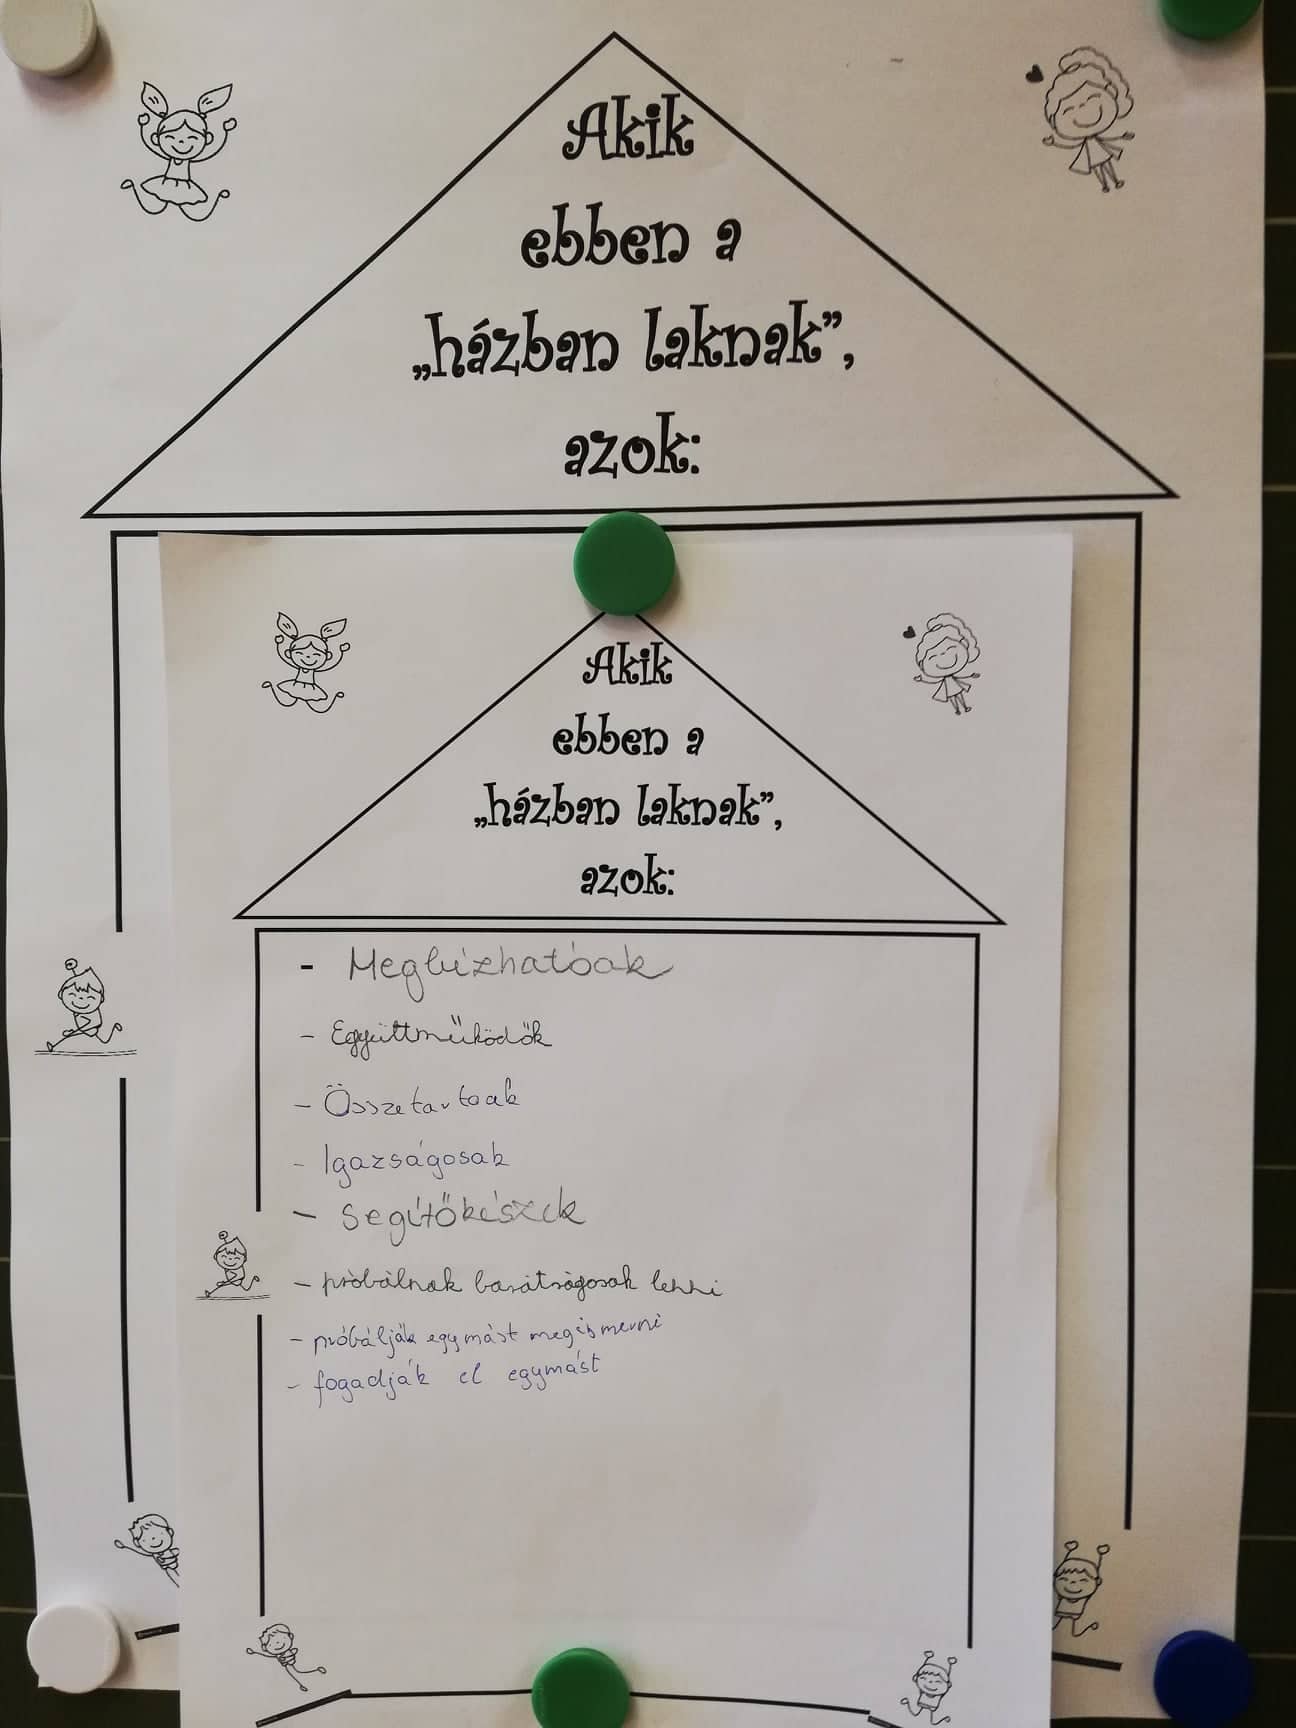 Akik
ebben a
„házban laknak”,
azok:
Akik
ebben a
„házban laknak”,
azok:
- Megbízhatóak
- Együttműködők
- Összetartoak
- Igazságosak
- Segítőkészek
- próbálnak barátságosak lenni
- próbálják egymást megismerni
- fogadják el egymást